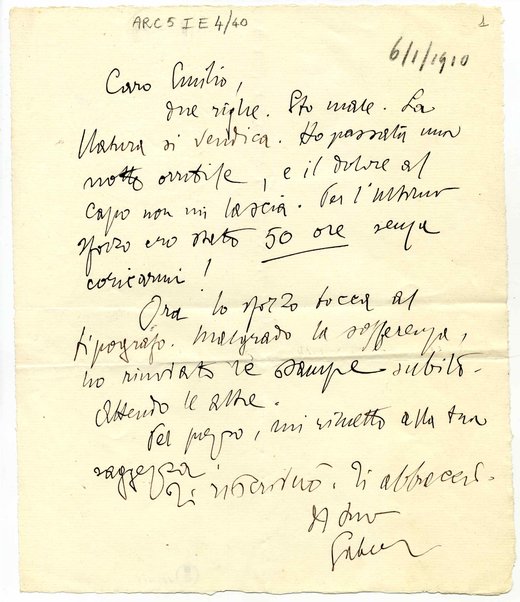 ARC 5 I E 4/40
1
6/1/1910
Caro Emilio,
due righe. Sto male. La
Natura si vendica. Ho passata una
notte orribile, e il dolore al
capo non mi lascia. Per l'ultimo
sforzo ero stato 50 ore senza
coricarmi!
Ora lo sforzo tocca al
tipografo. Malgrado la sofferenza,
ho rinviato le stampe subito.
Attendo le altre.
Pel prezzo, mi rimetto alla tua
saggezza.
Ti riscriverò. Ti abbraccio.
Il tuo
Gabri